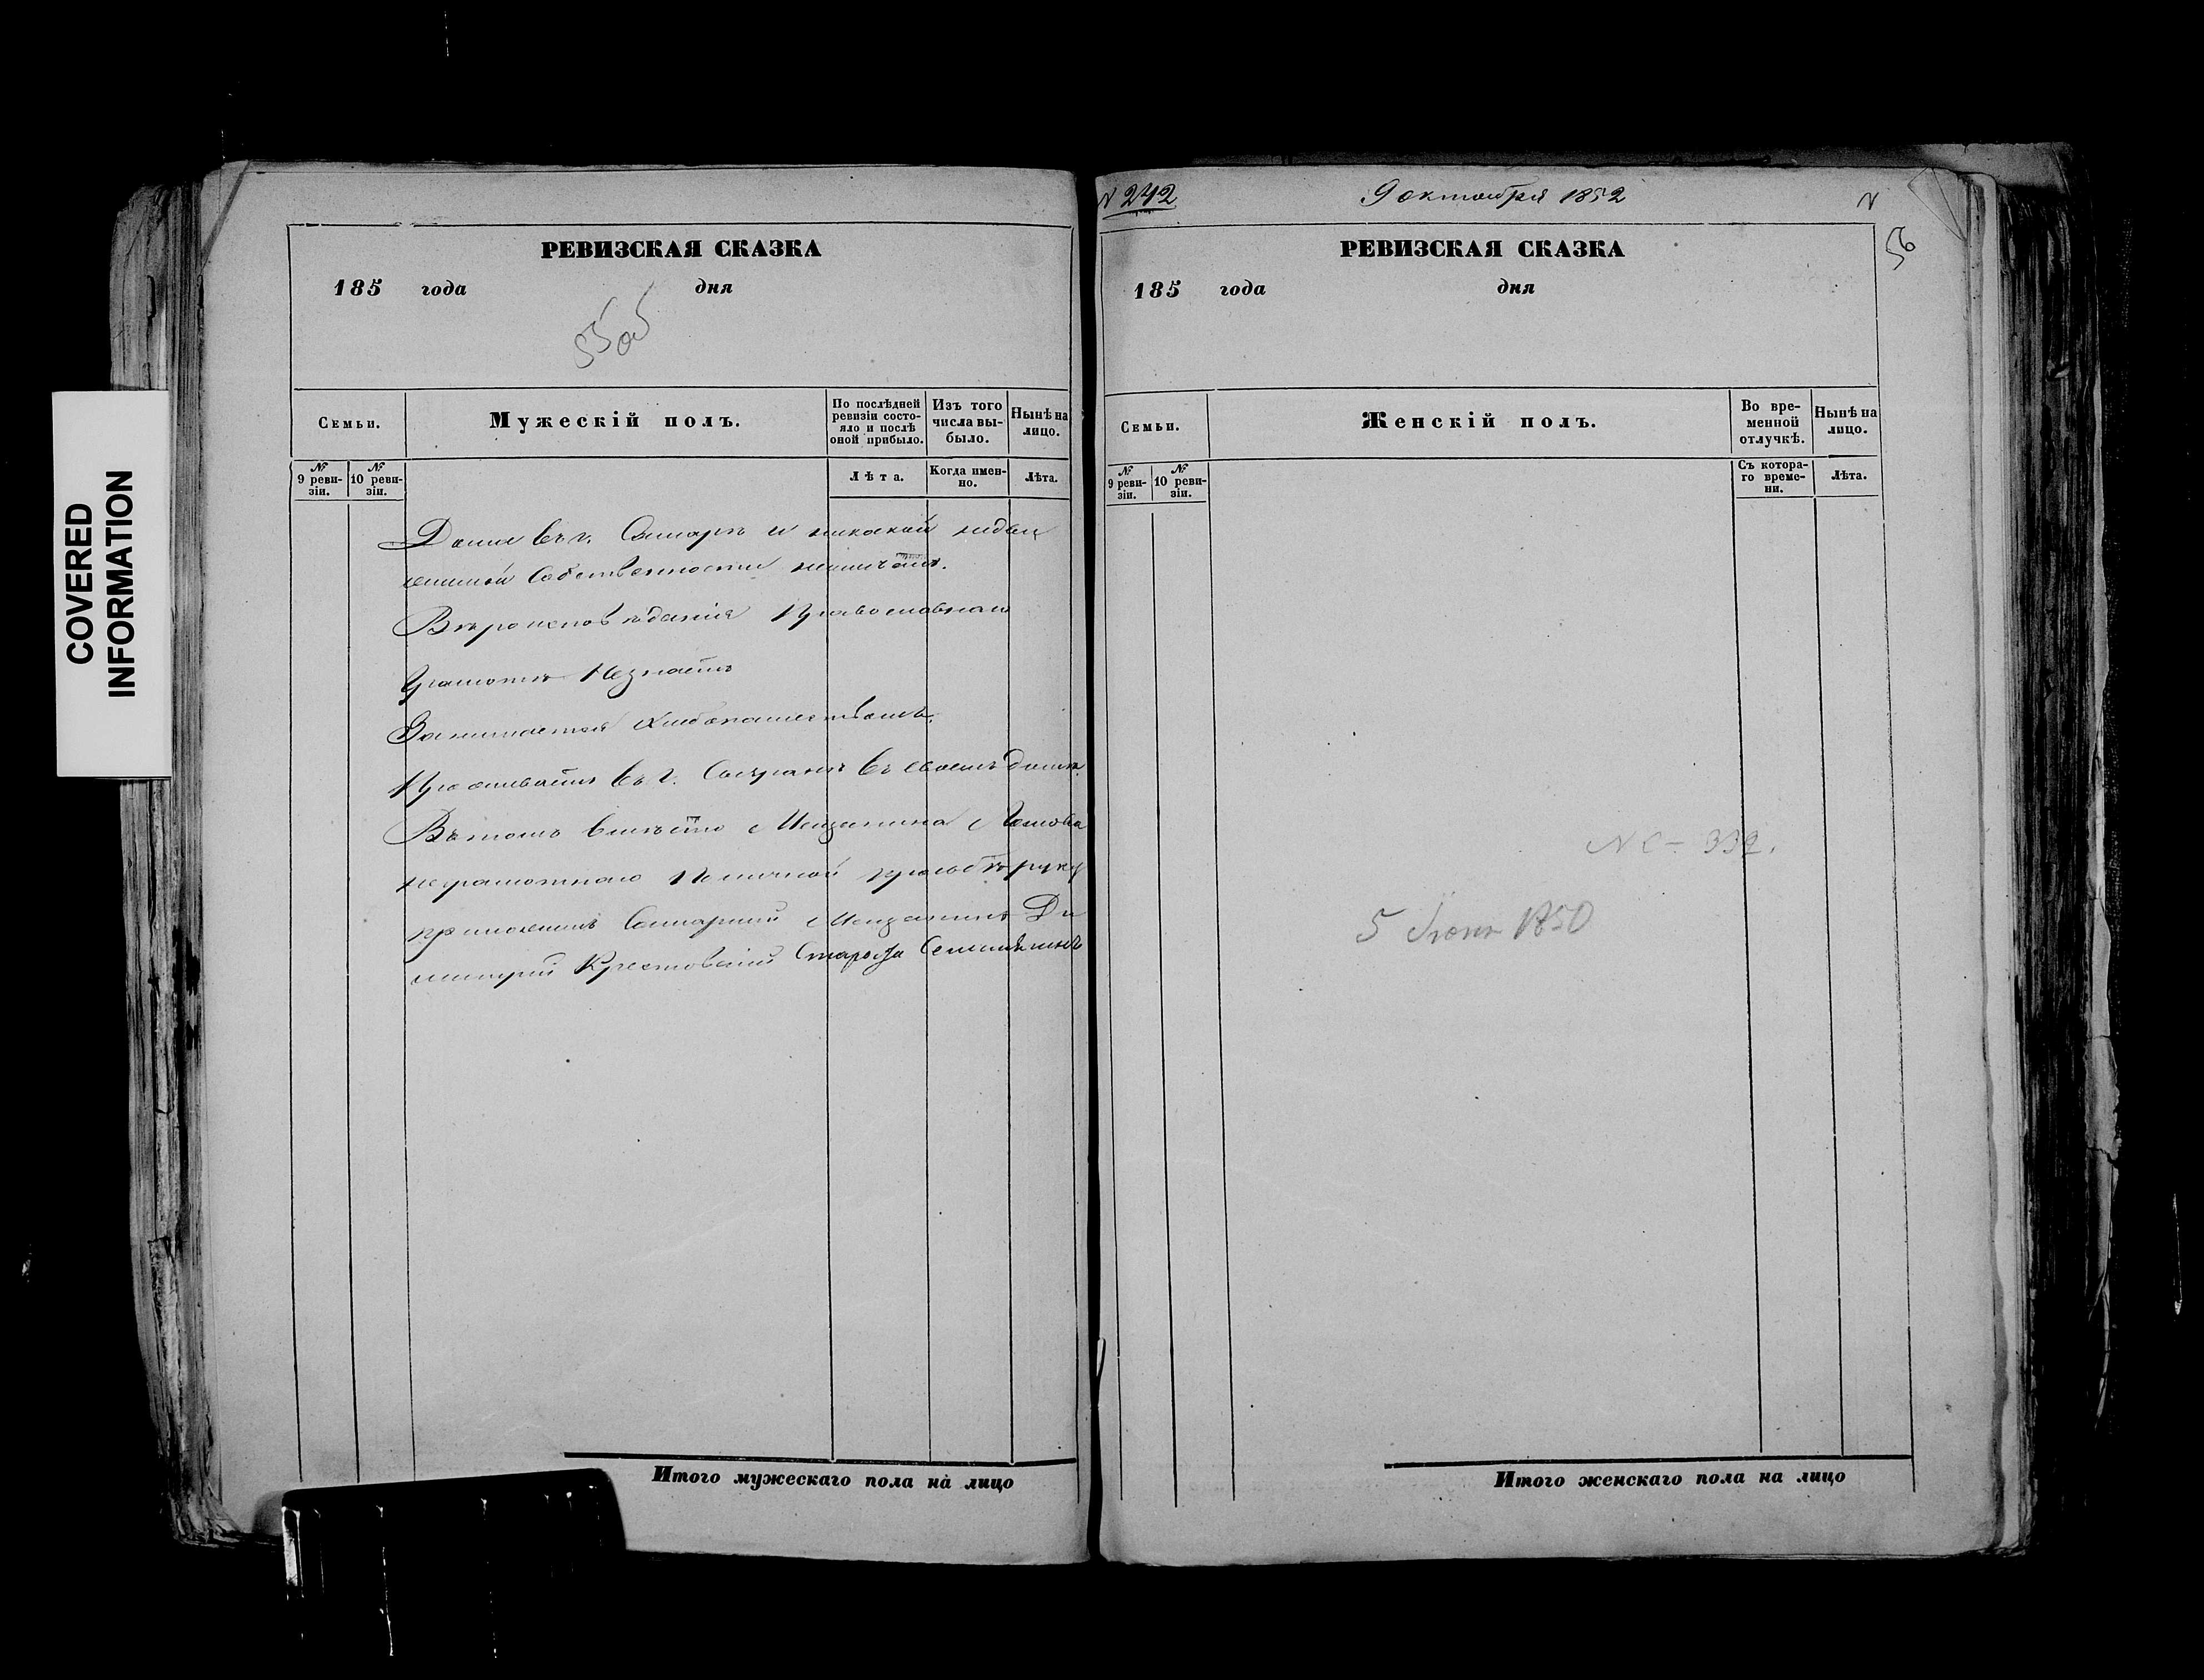 COVERED
INFORMATION
РЕВИЗСКАЯ СКАЗКА
185 года дня
55об
Семьи.
Мужескій полъ.
По послѣдней ревизіи состояло и послѣ оной прибыло.
Изъ того числа выбыло.
Нынѣ на лицо.
№ 9 ревизіи.
№ 10 ревизіи.
Лѣта.
Когда именно.
Лѣта.
Дома въ г. Самарѣ и никакой недви
жимой собственности неимѣетъ.
Вѣроисповѣданія Православнаго
Грамотѣ Незнаетъ
Занимается хлѣбопашествомъ.
Проживаетъ въ г. въ своемъ домѣ
Въ томъ вмѣсто Мещанина
неграмотнаго По личной прозьбѣ руку
приложилъ Самарский Мещанинъ Ди
митрий Крестовский Староста
Итого мужескаго пола на лицо
N 242
9 октября 1852
N
56
РЕВИЗСКАЯ СКАЗКА
185 года дня
Семьи.
Женскій полъ.
Во временной отлучкѣ.
Нынѣ на лицо.
№ 9 ревизіи.
№ 10 ревизіи.
Съ котораго времени.
Лѣта.
N С - 332.
5 1850
Итого женскаго пола на лицо